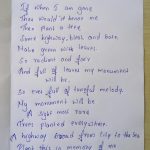 If when I am gone
Then would it honor me
Then plant a tree
Some highway, bleak and bare
Make green with leaves
So radiant and fair
And full of leaves my monument
will be.
So ever full of tuneful melody
My monument will be
A sight most rare
Trees planted everywhere.
A highway from city to the sea
Plant this in memory of me